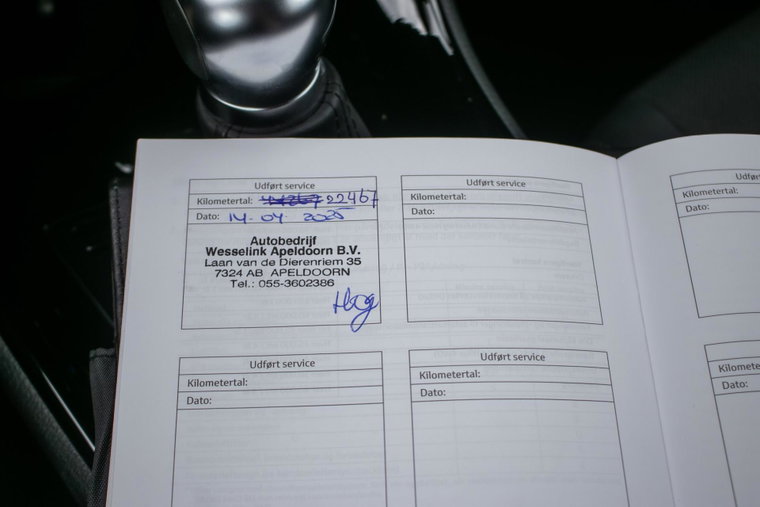 Udført service
Kilometertal: 22467
Dato: 14-04 2025
Autobedrijf
Wesselink Apeldoorn B.V.
Laan van de Dierenriem 35
7324 AB APELDOORN
Tel.: 055-3602386
Udført service
Kilometertal:
Dato:
Udført service
Kilometertal:
Dato:
Udført service
Kilometertal:
Dato:
Kilometertal:
Dato:
Kilometertal:
Dato: